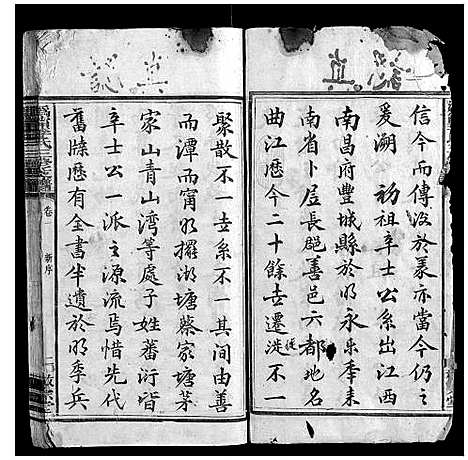 信今而傳後於義亦當今仍之
爰溯 初祖辛士公系出江西
南昌府豐城縣於明永乐季来
南省卜居長邑善邑六都地名
曲江歷今二十餘世遷徙不一
聚散不一世系不一其間由善
而潭而甯明擺湖塘蔡家塘茅
家山青山湾等處子姓蕃衍皆
辛士公一派之源流焉惜先代
舊牒歷有全書半遺於明季兵
卷一
新序